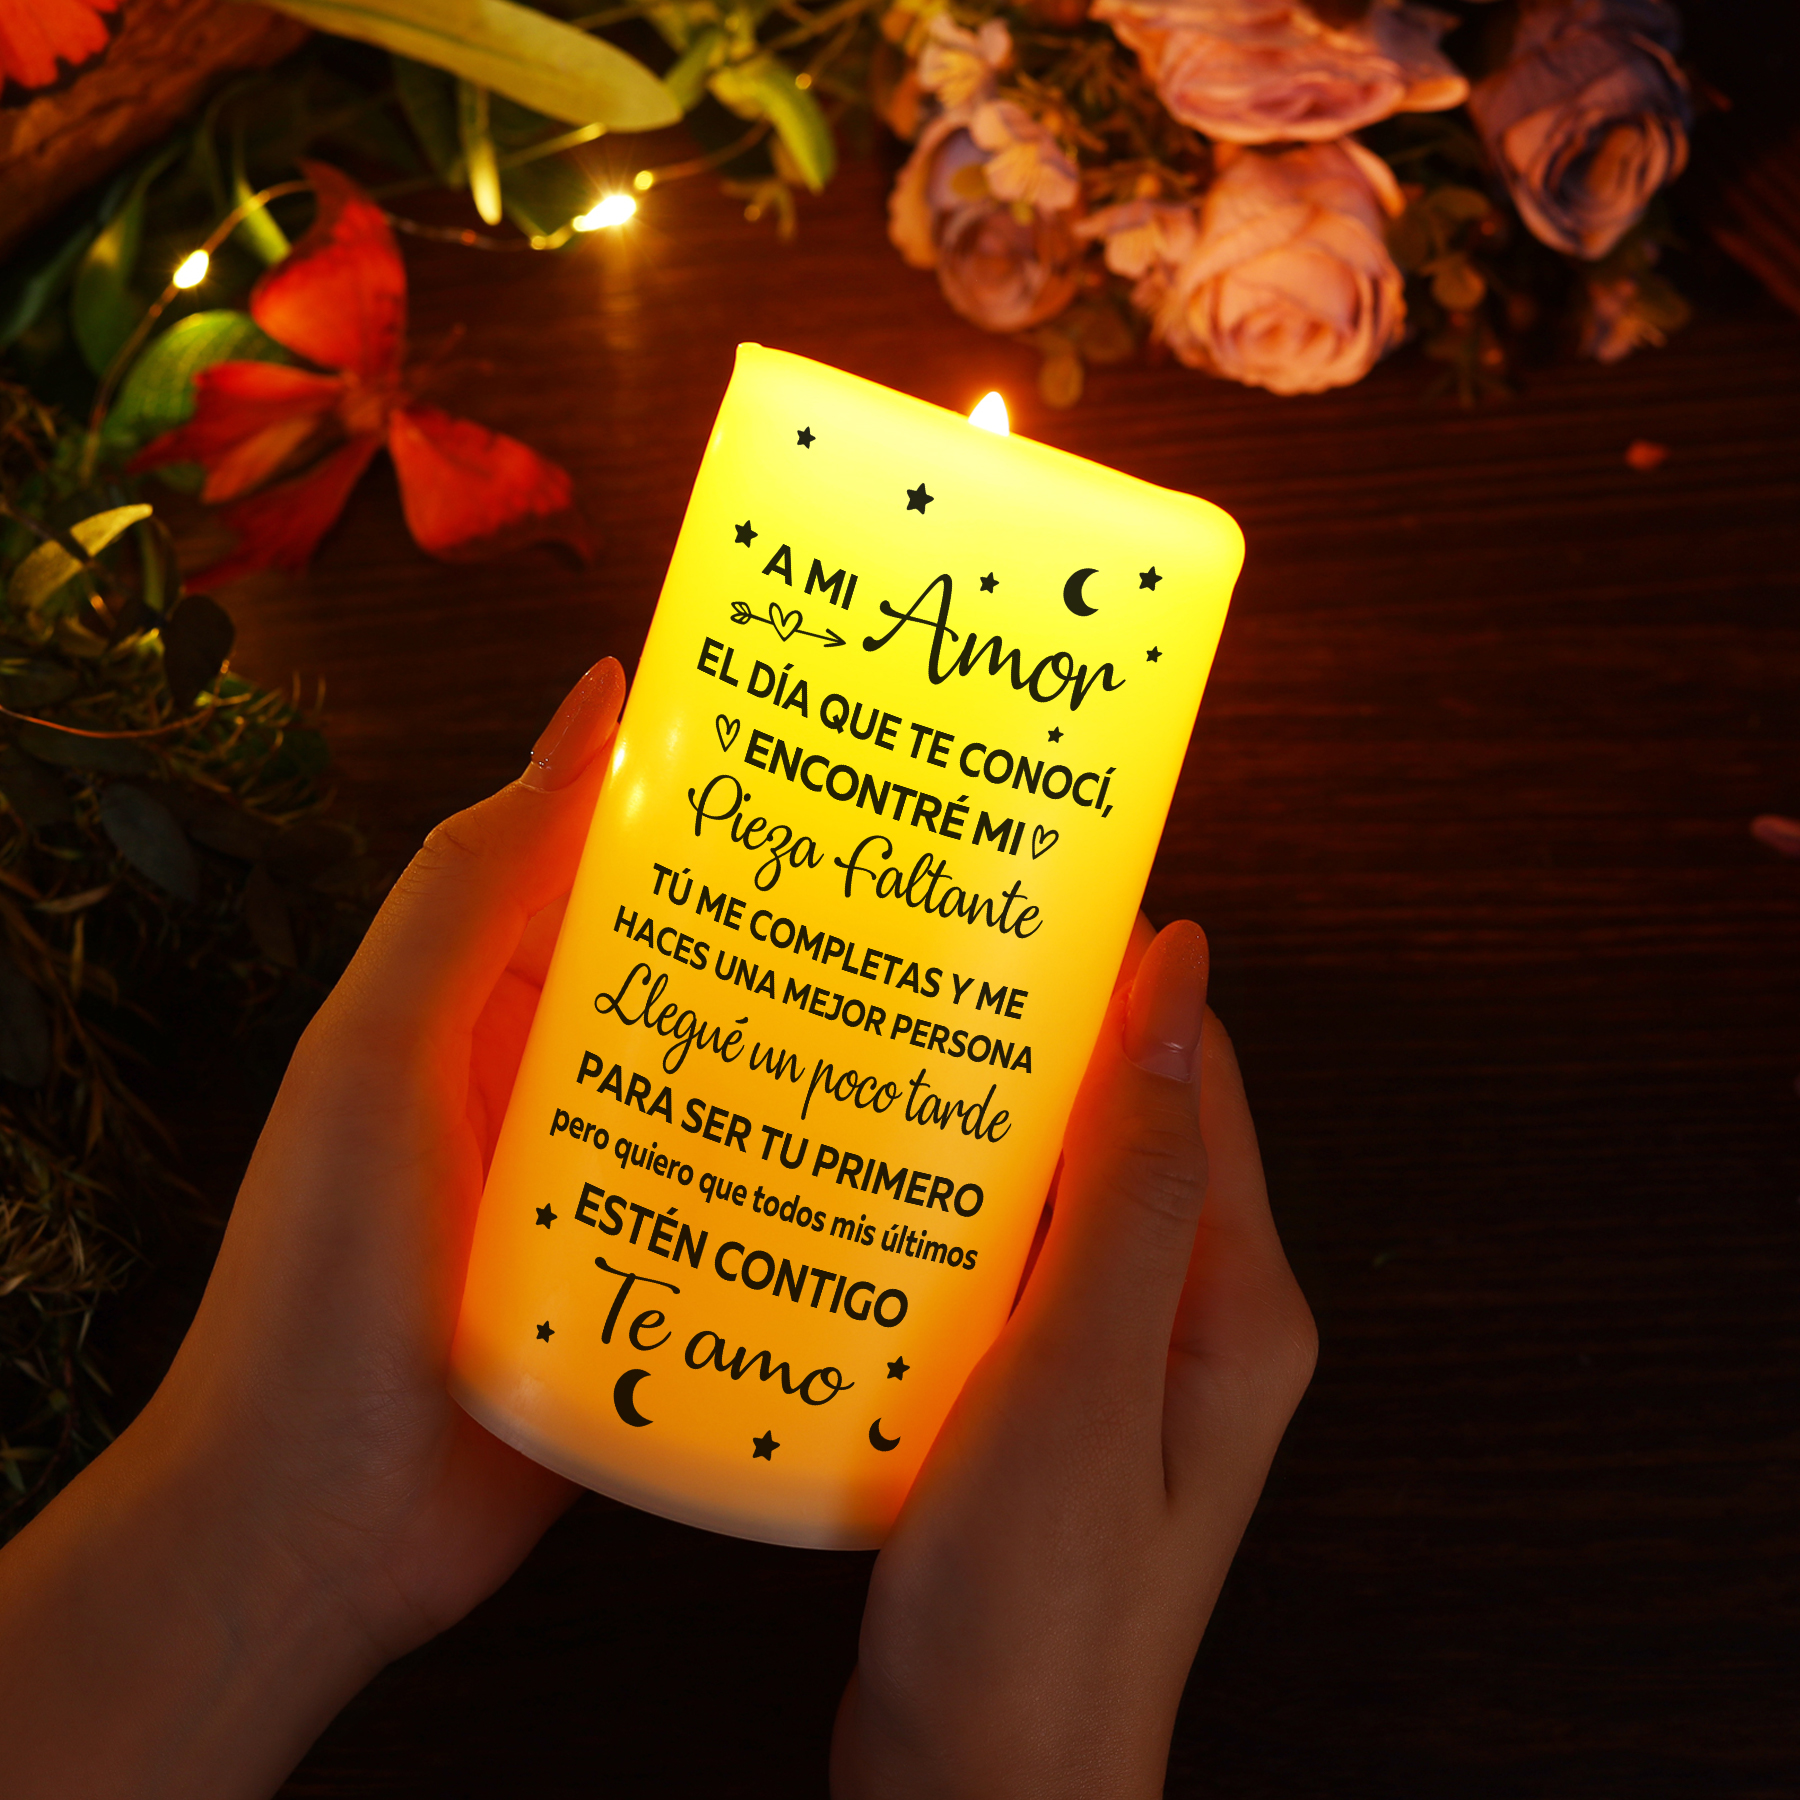 A MI Amor
EL DÍA QUE TE CONOCÍ,
ENCONTRÉ MI
Pieza Faltante
TÚ ME COMPLETAS Y ME
HACES UNA MEJOR PERSONA
Llegué un poco tarde
PARA SER TU PRIMERO
pero quiero que todos mis últimos
ESTÉN CONTIGO
Te amo